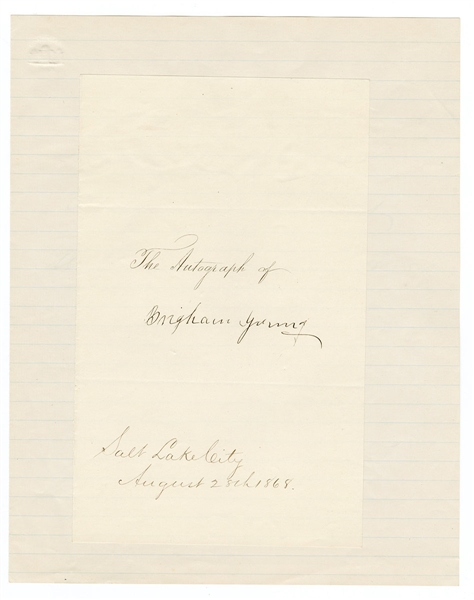 The Autograph of
Brigham Young
Salt Lake City
August 28th 1868.